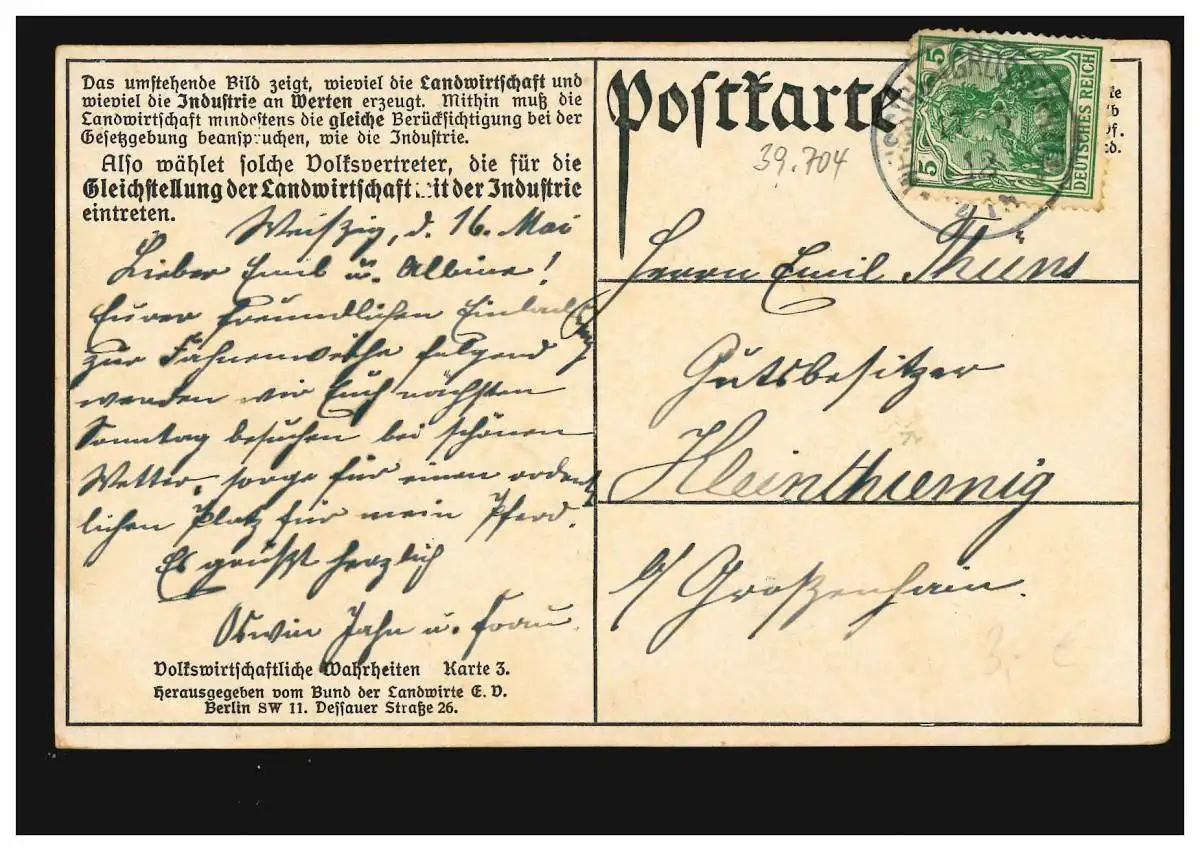 Das umstehende Bild zeigt, wieviel die Landwirtschaft und
wieviel die Industrie an Werten erzeugt. Mithin muß die
Landwirtschaft mindestens die gleiche Berücksichtigung bei der
Gesetzgebung beanspruchen, wie die Industrie.
Also wählet solche Volksvertreter, die für die
Gleichstellung der Landwirtschaft mit der Industrie
eintreten.
Weißig, d. 16. Mai
Lieber Emil u. Albine!
Eurer freundlichen Einladung
zur Fahnenweihe folgend
werden wir Euch nächsten
Sonntag besuchen bei schönen
Wetter, sorge für einen ordent
lichen Platz für mein Pferd.
Es grüßt herzlich
Oswin Jahn u. Frau.
Volkswirtschaftliche Wahrheiten Karte 3.
Herausgegeben vom Bund der Landwirte E. V.
Berlin SW 11. Dessauer Straße 26.
Postkarte
39.704
5 5
DEUTSCHES REICH
13
Herrn Emil
Gutsbesitzer
Kleinthiemig
b/ Großenhain.
3.- €